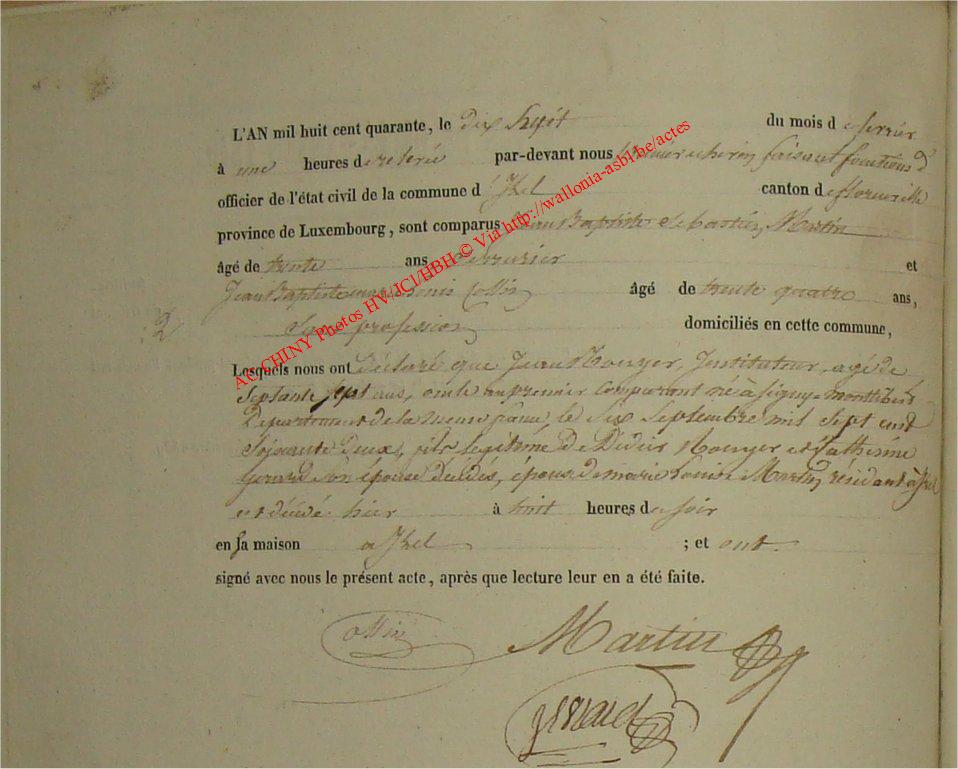 L'AN mil huit cent quarante, le dix sept du mois de fevrier
à une heures de relevée par-devant nous faisant fonctions d'
officier de l'état civil de la commune d'Izel canton de florenville
province de Luxembourg, sont comparus Jean Baptiste Sebastien Martin
âgé de trente ans serrurier et
Jean Baptiste Louis Collin âgé de trente quatre ans,
2
Sans profession domiciliés en cette commune,
Lesquels nous ont déclaré que Jean Institutur, agé de
Septante Sept ans, oncle au premier comparant né à Signy-Montlibert
Département de la meuse le Six Septembre mil Sept cent
Soixante Deux, fils legitime de Didier et Catherine
Gerard son épouse décédés, époux de marie Louise Martin résidant à Izel
est décédé hier à huit heures du soir
en sa maison a Izel ; et ont
signé avec nous le présent acte, après que lecture leur en a été faite.
Collin Martin
AC CHINY Photos HV/JCl/HBH © Via http://wallonia-asbl.be/actes